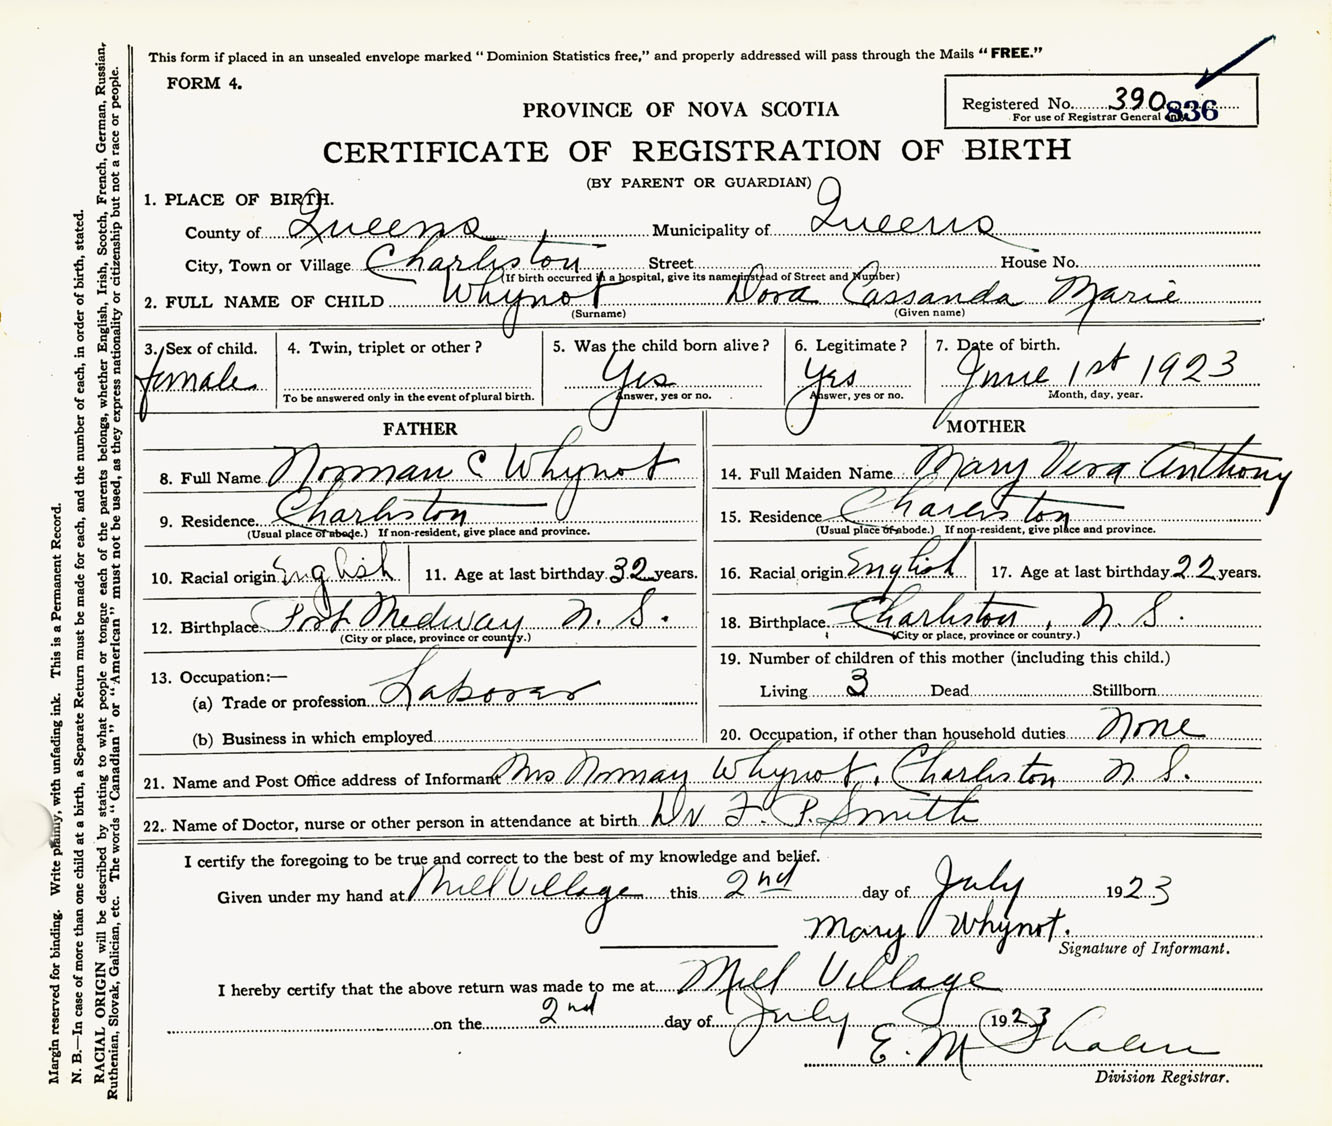 This form if placed in an unsealed envelope marked “ Dominion Statistics free,” and properly addressed will pass through the Mails “ FREE.”
FORM 4.
Registered No. 390 836
For use of Registrar General only.
PROVINCE OF NOVA SCOTIA
CERTIFICATE OF REGISTRATION OF BIRTH
(BY PARENT OR GUARDIAN)
1. PLACE OF BIRTH.
County of Queens Municipality of Queens
City, Town or Village Charleston Street House No.
(If birth occurred in a hospital, give its name instead of Street and Number)
2. FULL NAME OF CHILD Whynot Dora Cassanda Marie
(Surname) (Given name)
3. Sex of child. 4. Twin, triplet or other ? 5. Was the child born alive ? 6. Legitimate ? 7. Date of birth.
female Yes Yes June 1st 1923
To be answered only in the event of plural birth. Answer, yes or no. Answer, yes or no. Month, day, year.
FATHER
8. Full Name Norman C Whynot
9. Residence Charleston
(Usual place of abode.) If non-resident, give place and province.
10. Racial origin English 11. Age at last birthday 32 years.
12. Birthplace Port Medway N. S.
(City or place, province or country.)
13. Occupation:—
(a) Trade or profession Laborer
(b) Business in which employed
MOTHER
14. Full Maiden Name Mary Vera Anthony
15. Residence Charleston
(Usual place of abode.) If non-resident, give place and province.
16. Racial origin English 17. Age at last birthday 22 years.
18. Birthplace Charleston, N S.
(City or place, province or country.)
19. Number of children of this mother (including this child.)
Living 3 Dead Stillborn
20. Occupation, if other than household duties None
21. Name and Post Office address of Informant Mrs Norman Whynot, Charleston N S.
22. Name of Doctor, nurse or other person in attendance at birth Dr F. P. Smith
I certify the foregoing to be true and correct to the best of my knowledge and belief.
Given under my hand at Mill Village this 2nd day of July 1923
Mary Whynot.
Signature of Informant.
I hereby certify that the above return was made to me at Mill Village
on the 2nd day of July 1923
E. M
Division Registrar.
Margin reserved for binding. Write plainly, with unfading ink. This is a Permanent Record.
N. B.—In case of more than one child at a birth, a Separate Return must be made for each, and the number of each, in order of birth, stated.
RACIAL ORIGIN will be described by stating to what people or tongue each of the parents belongs, whether English, Irish, Scotch, French, German, Russian,
Ruthenian, Slovak, Galician, etc. The words “ Canadian ” or “ American ” must not be used, as they express nationality or citizenship but not a race or people.